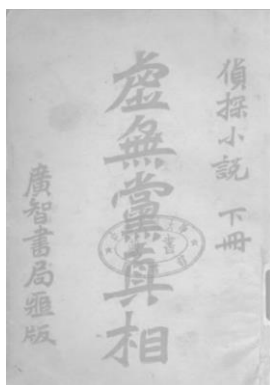 偵探小説 下冊
虛無黨真相
廣智書局
版